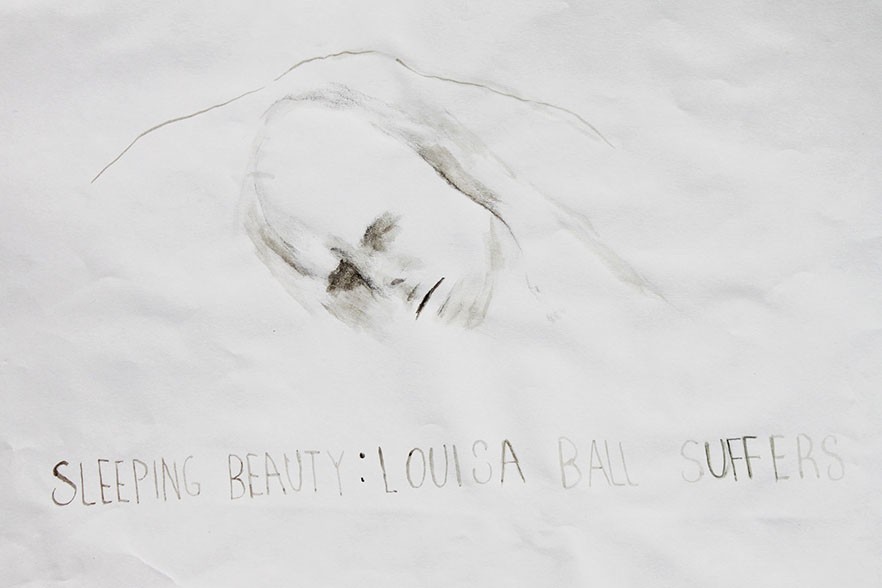 SLEEPING BEAUTY: LOUISA BALL SUFFERS